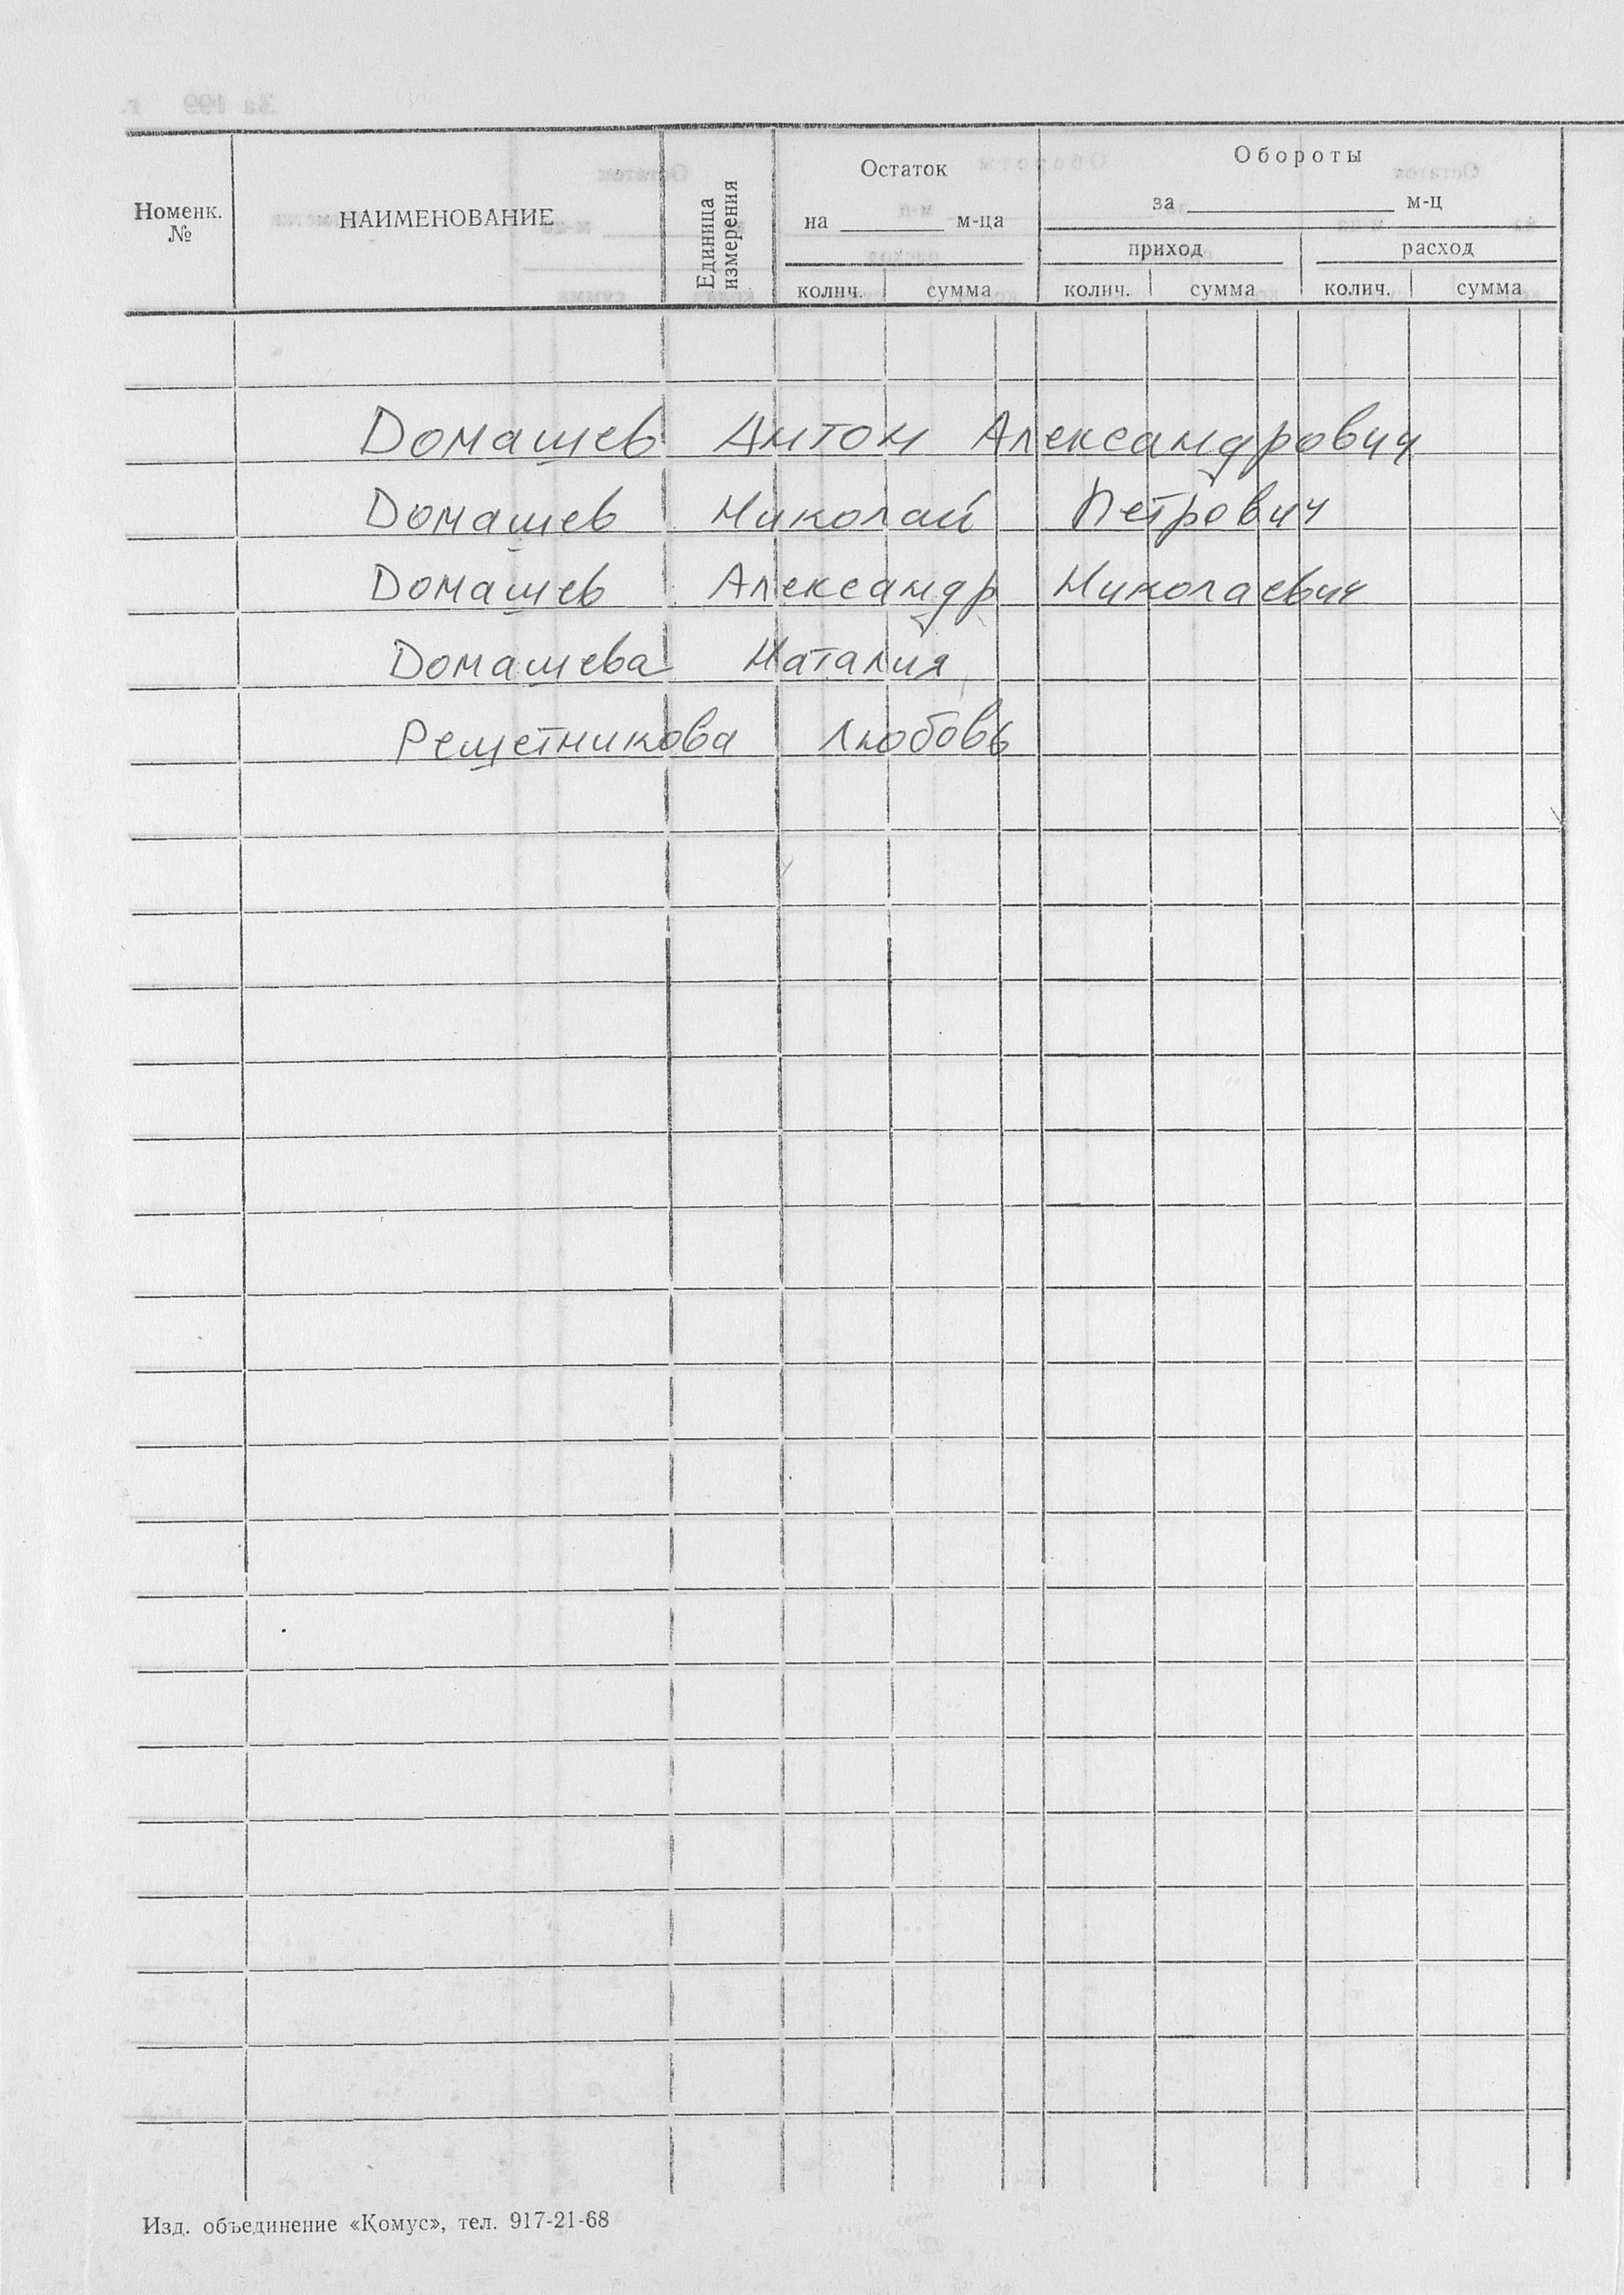 Номенк. №
НАИМЕНОВАНИЕ
Единица измерения
Остаток
на м-ца
колич. сумма
Обороты
за м-ц
приход расход
колич. сумма колич. сумма
Домашев Антон Александрович
Домашев Николай Петрович
Домашев Александр Николаевич
Домашева Наталия
Решетникова Любовь
Изд. объединение «Комус», тел. 917-21-68